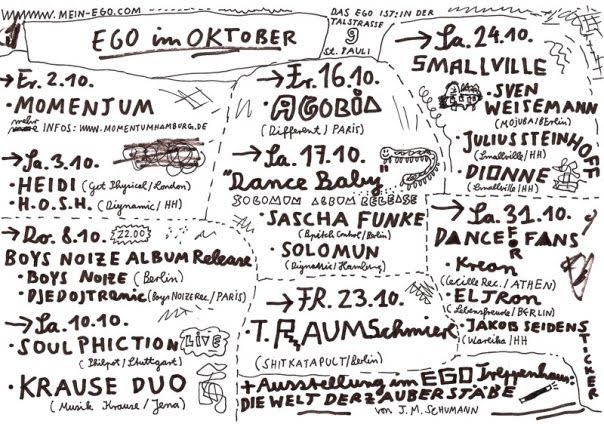 WWW.MEIN-EGO.COM
DAS EGO IST: IN DER
TALSTRASSE
9
ST. PAULI
EGO im OKTOBER
→ Fr. 2.10.
• MOMENTUM
mehr
INFOS: WWW.MOMENTUMHAMBURG.DE
→ Sa. 3.10.
• HEIDI (Get Physical/London)
• H.O.S.H. (Diynamic/HH)
→ Do. 8.10. 22.00
BOYS NOIZE ALBUM Release
• BOYS NOIZE (Berlin)
• DJEDJOTRONIC (Boys NOIZE Rec./PARIS)
→ Sa. 10.10.
• SOULPHICTION LIVE
(Philpot/Stuttgart)
• KRAUSE DUO
(Musik Krause/Jena)
→ Fr. 16.10.
• AGORIA
(Different/PARIS)
→ Sa. 17.10.
"Dance Baby"
SOLOMUN ALBUM RELEASE
• SASCHA FUNKE
(Bpitch Control/Berlin)
• SOLOMUN
(Diynamic/Hamburg)
→ FR. 23.10.
• T. RAUMSchmiere
(SHITKATAPULT/Berlin)
→ Sa. 24.10.
SMALLVILLE
• SVEN
WEISEMANN
(MOJUBA/BErlin)
• JULIUS STEINHOFF
(Smallville/HH)
• DIONNE
(Smallville/HH)
→ Sa. 31.10.
DANCE FOR FANS
• Kreon
(Cecille Rec./ATHEN)
• ELTRON
(Lebensfreude/BERLIN)
• JAKOB SEIDENSTICKER
(Wareika/HH
+ Ausstellung im EGO Treppenhaus:
DIE WELT DER ZAUBERSTÄBE
von J.M. SCHUMANN